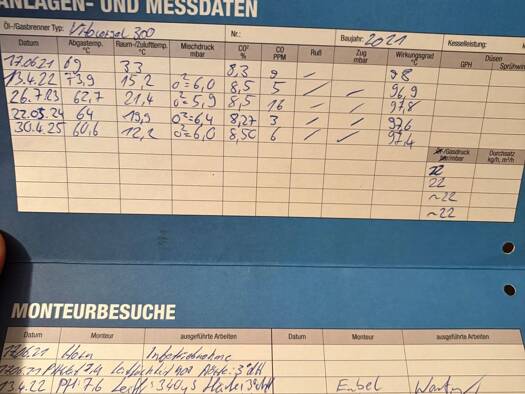 ANLAGEN- UND MESSDATEN
Öl-/Gasbrenner Typ: Vitocrossal 300 Nr.: Baujahr: 2021 Kesselleistung:
Datum Abgastemp. °C Raum-/Zulufttemp. °C Mischdruck mbar CO² % CO PPM Ruß Zug mbar Wirkungsgrad % Düsen GPH Sprühwin
17.06.21 69 33 8,3 9 / / 98
13.4.22 73,9 15,2 o²=6,0 8,5 5 / / 96,9
26.7.23 62,7 21,4 o²=5,9 8,5 16 / / 97,8
22.05.24 64 19,9 o²=6,4 8,27 3 / / 97,6
30.4.25 60,6 12,2 o²=6,0 8,50 6 / / 97,4
Öl-/Gasdruck bar/mbar Durchsatz kg/h, m³/h
22
22
~22
~22
MONTEURBESUCHE
Datum Monteur ausgeführte Arbeiten Datum Monteur ausgeführte Arbeiten
17.06.21 Horn Inbetriebnahme
17.06.21 7,4
13.4.22 PH: 7.6 Leitf.: 340µs